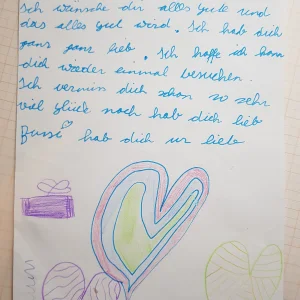 Ich wünsche dir alles Gute und
das alles gut wird. Ich hab dich
ganz ganz lieb. Ich hoffe ich kann
dich wieder einmal besuchen.
Ich vermis dich schon so sehr
viel Glück noch hab dich lieb
Bussi hab dich ur liebe